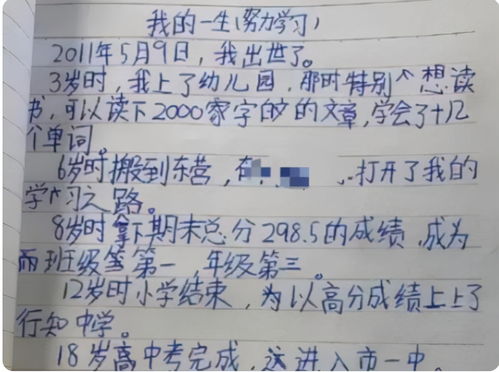 我的一生(努力学习)
2011年5月9日，我出世了。
3岁时，我上了幼儿园，那时特别想读
书，可以读下2000家字的的文章,学会了十几
个单词。
6岁时搬到东营，打开了我的
学习之路。
8岁时拿下期末总分298.5的成绩，成为
班级第一，年级第三。
12岁时小学结束，为以高分成绩上上了
行知中学。
18岁高中考完成，进入市一中。